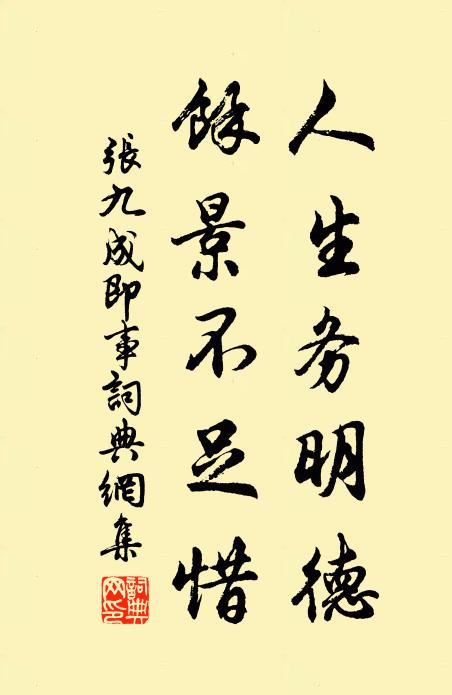 人生务明德
餘景不足惜
張九成即事詞典網集
詞典網印